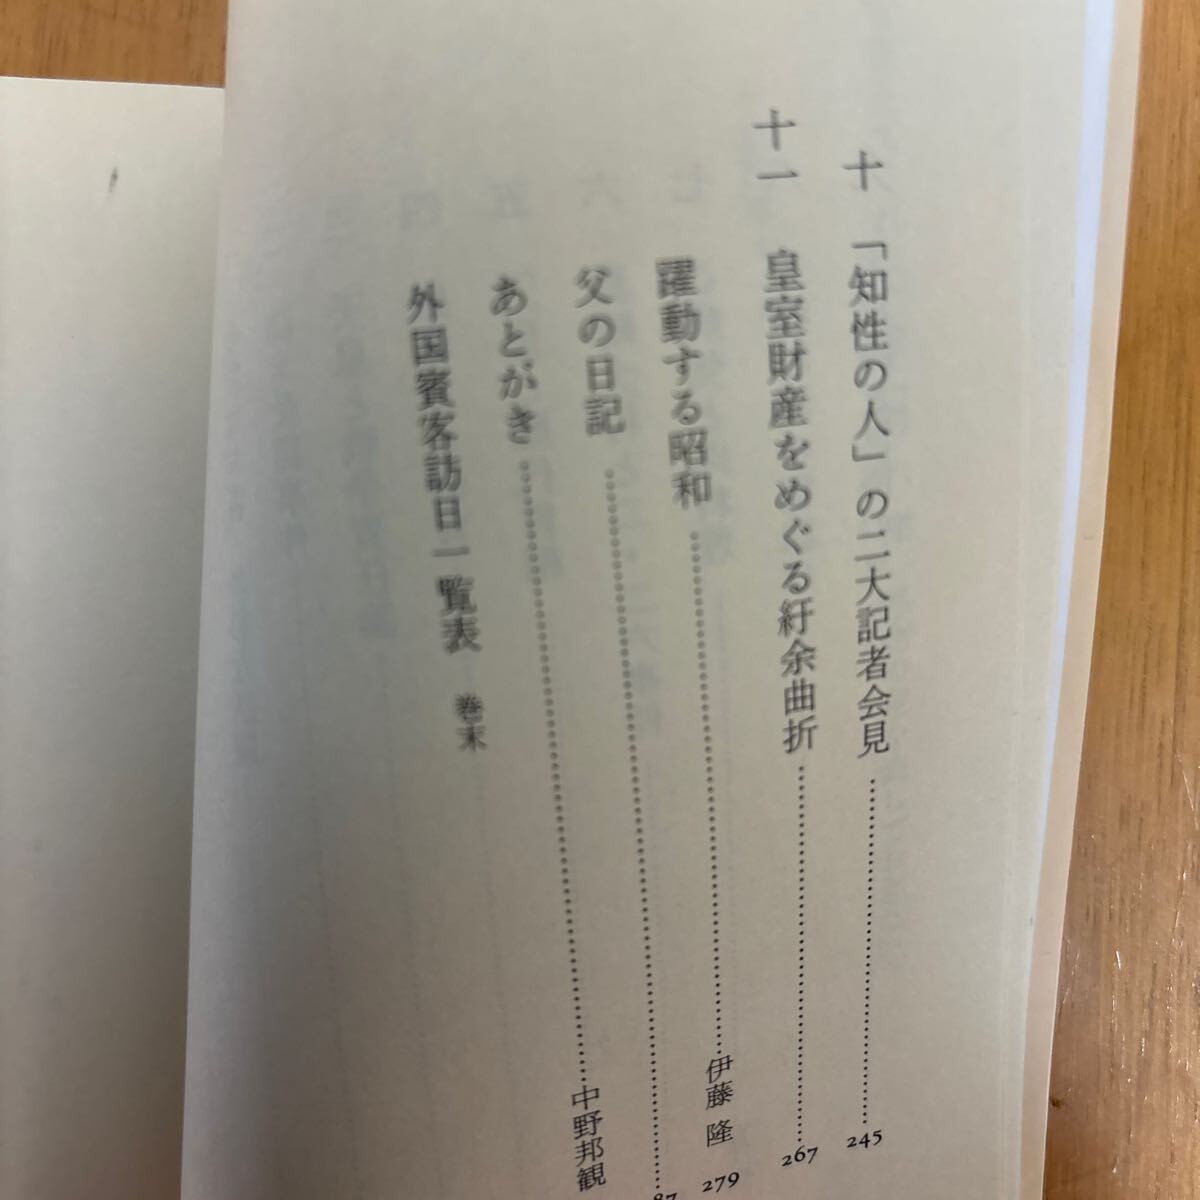 十 「知性の人」の二大記者会見……………………245
十一 皇室財産をめぐる紆余曲折……………………267
躍動する昭和……………………伊藤 隆 279
父の日記……………………87
あとがき……………………中野邦観
外国賓客訪日一覧表 巻末